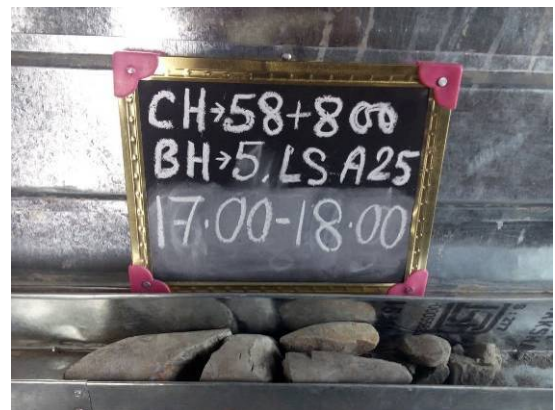 CH→58+800
BH→5, LS A25
17.00-18.00